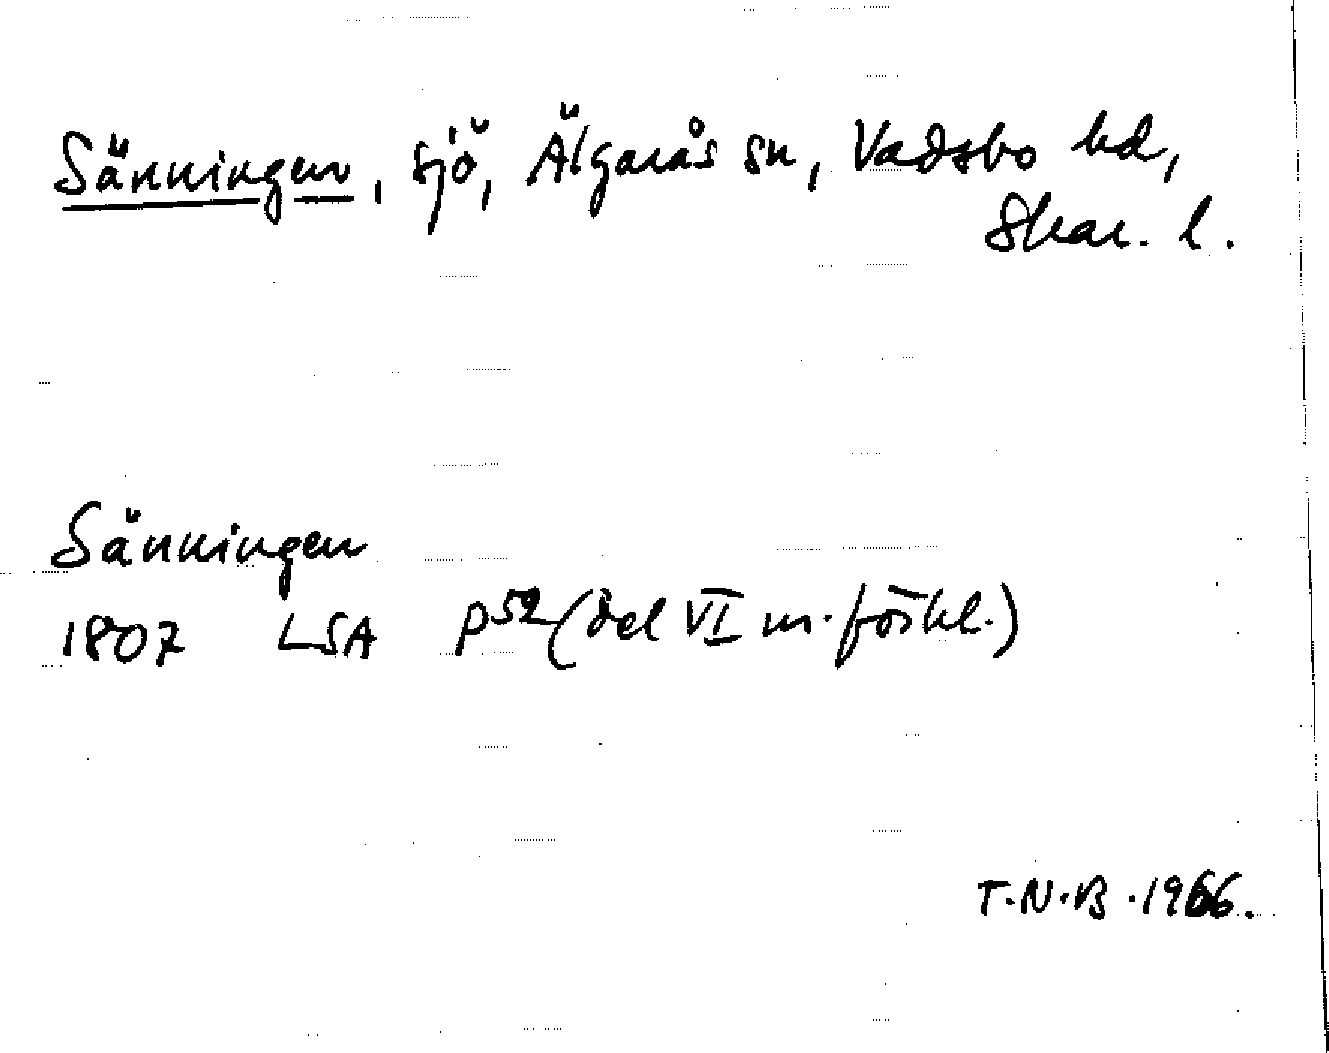 Sänningen, sjö, Älgarås sn, Vadsbo hd,
Skar. l.
Sänningen
1807 LSA P52 (del VI m. förkl.)
T.N.B. 1966.